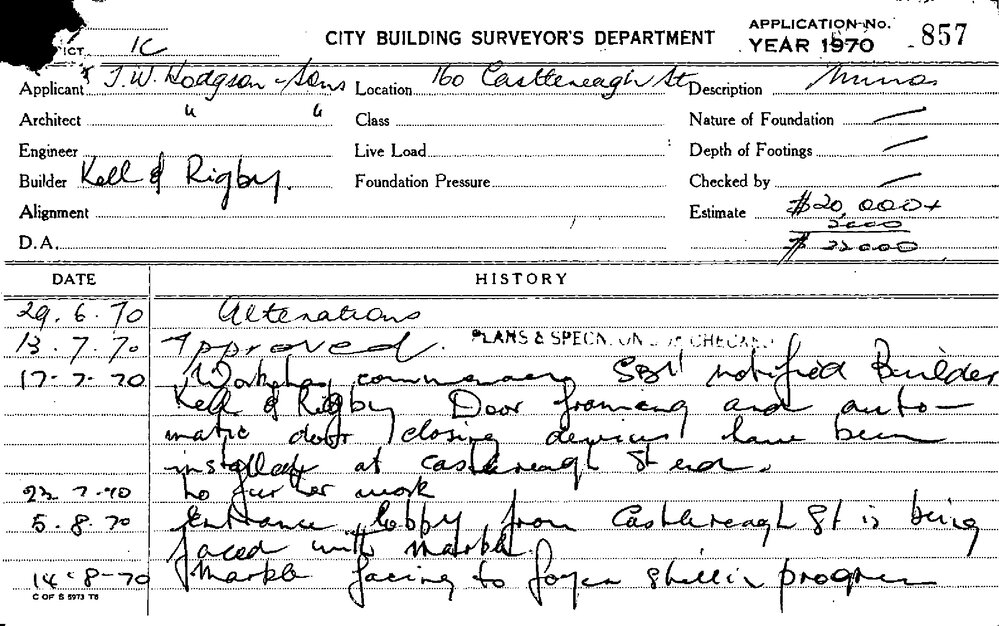 ICT. 1C CITY BUILDING SURVEYOR'S DEPARTMENT APPLICATION No. 857
YEAR 1970
Applicant J. W. Hodgson & Sons Location 160 Castlereagh St Description Minor
Architect " " Class Nature of Foundation —
Engineer Live Load Depth of Footings —
Builder Kell & Rigby. Foundation Pressure Checked by —
Alignment Estimate $20,000+
2000
D.A. $ 22000
DATE HISTORY
29. 6. 70 Alterations
13. 7. 70 Approved. PLANS & SPECN. CHECKED
17- 7. 70 Work has commenced notified Builder
Kell & Rigby Door framing and auto-
matic door closing devices have been
installed at Castlereagh St end.
22 7-70 No further work
5. 8. 70 Entrance lobby from Castlereagh St is being
faced with marble.
14-8-70 Marble facing to foyer still in progress
C OF S 5973 T6